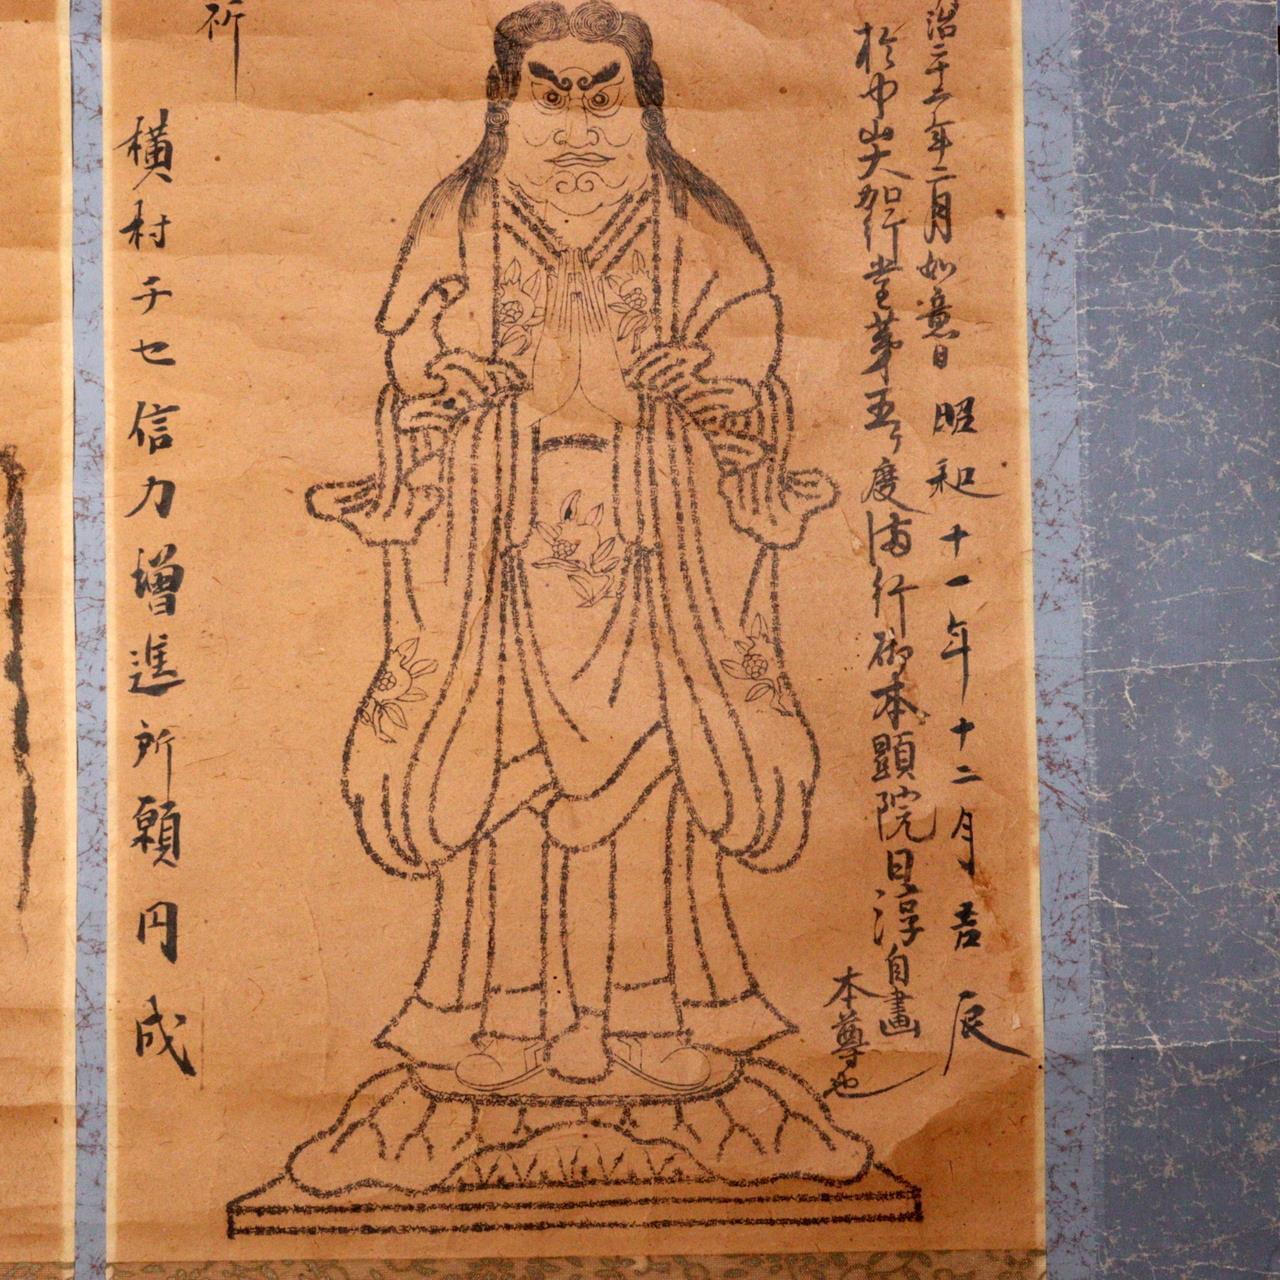 治二十二年二月如意日
昭和十一年十二月吉辰
於中山大加行堂第五ヶ度満行砌本顕院日淳自畫
本尊也
祈
横村チセ信力増進所願円成